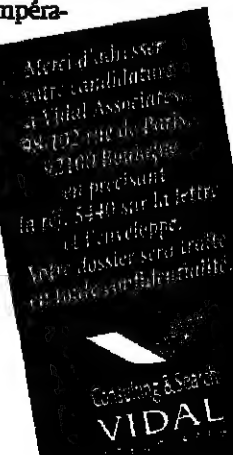 mpéra-
Merci d'adresser
votre candidature
à Vidal Associates
98/102 rue de Paris
92100 Boulogne
en précisant
la réf. 5440 sur la lettre
et l'enveloppe.
Votre dossier sera traité
en toute confidentialité.
Consulting & Search
VIDAL